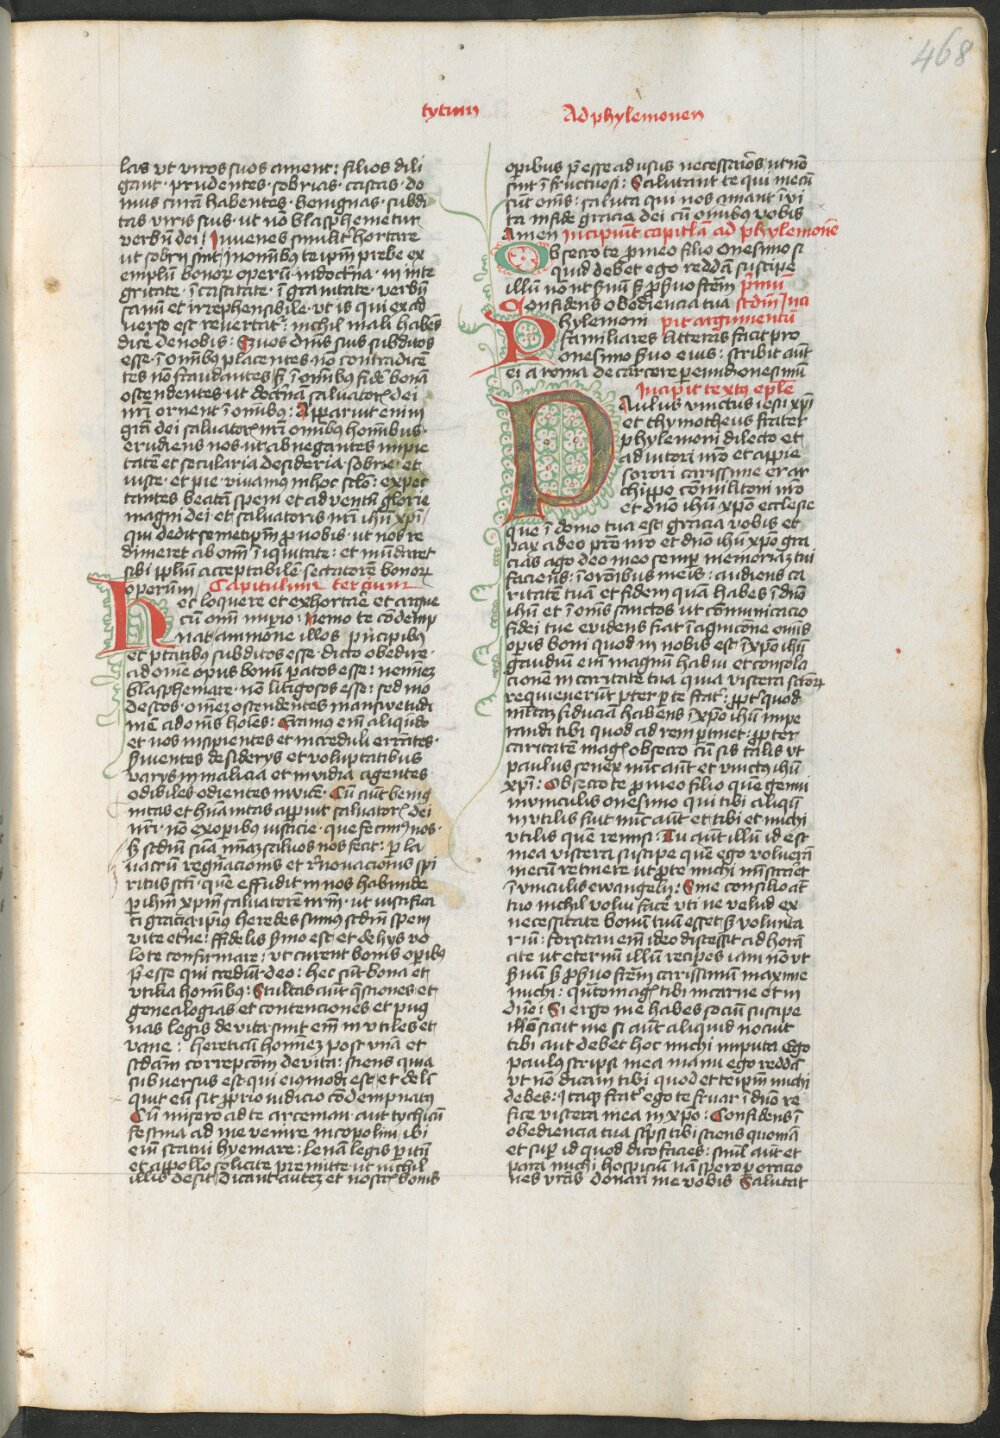 468
tytum Ad phylemonen
las vt viros suos ament: filios dili
gant· prudentes· sobrias· castas· do
mus curā habentes· benignas· subdi
tas viris suis· ut nō blasphemetur
verbū dei Iuvenes similit̄ hortare
ut sobrii sint In om̄ibꝰ teip̄m prebe ex
emplū bonoꝝ operū· in doctͥna· in inte
gritate· ī castitate· ī gravitate· verbū
sanū et irrephensibile· vt is qui ex ad
verso est revertatͬ: nichil mali habēs
dicē de nobis: Suos dn̄is suis subditos
esse· ī om̄ibꝰ placentes nō contradicē
tes nō fraudantes sꝫ ī om̄ibꝰ fidē bonā
ostendentes ut doctͥnā salvatorꝭ dei
nr̄i ornent ī omibꝰ: Apparuit enim
gr̄a dei salvatorꝭ nr̄i om̄ibus hom̄ibus·
erudiens nos· ut abnegantes impie
tatē et secularia desideria· sobrie· et
iuste· et pie vivamus in hoc sc̄lo: expec
tantes beatā spem et adventū glorie
magni dei et salvatoris nr̄i ihū xp̄i
qui dedit semetip̄m ꝓ nobis· ut nos re
dimeret ab om̄i ī iqͥtate: et mūdaret
sibi pp̄lum acceptabilē sectatorē bonoꝝ
operum Capitulum tercium
Hec loquere et exhortaꝛe et argue
cū om̄i inꝑio: Nemo te cōdemp
nat ammone illos p̄ncipibꝰ
et ptatibꝰ subditos esse· dicto obedire·
ad om̄e opus bonū ꝑatos esse: neminē
blasphemare· nō litigosos esse: sed mo
destos· om̄em ostendentes mansuetudi
nē ad om̄s hoīes: Eramus em̄ aliqn̄do
et nos insipientes et increduli errātes·
s̄vientes desiderys et voluptatibus
varys in malicia et invidia agentes
odibiles odientes invicē: Cū aūt benig
nitas et hūanitas apꝑuit salvatorꝭ dei
nr̄i· nō ex oꝑibꝰ iusticie· que fecimꝰ nos·
sꝫ scd̄m suā mīam salvos nos fecit: ꝑ la
vacrū regn̄acionis et r̄novacionis spi
ritus sc̄ti· quē effudit in nos habunde
ꝑ ih̄m xp̄m salvatorē nr̄m· ut iustifica
ti gracia ip̄ius heredes simus scd̄m spem
vite et̄ne: ffidelis s̄mo est· et de hys vo
lo te confirmare: vt curent bonis oꝑibꝰ
p̄esse qui credunt deo: hec sūt bona et
utilia hom̄ibꝰ: Stultas aūt qͣstiones et
genealogias et contenciones et pug
nas legis devita· sunt em̄ in utiles et
vane: hereticū hominem post unā et
scd̄am correpcōm devita: sciens quia
subversus est· qui eiꝰmodi est· et deli
quit cū sit ꝓprio iudicio cōdempnatꝰ
Cū misero ad te arceman· aut tychicū
festina ad me venire nicopolim· ibi
em̄ statui hyemare: Zenam legis ꝑitū
et appollo solicite premitte· ut nichil
illis desit Dicant autem et nostrꝭ bonis
opibus p̄esse ad usus necessaꝛios ut nō
sint ī fructuosi: Salutant te qui mecū
sūt om̄s: saluta qui nos amant ī vi
ta in fide gracia dei cū om̄ibꝰ vobis
Amen Incipiūt capitl̄a ad phylemonē
Obsecro te ꝓ meo filio onesimo si
quid debet ego reddā suscipe
illū nō ut s̄vum sꝫ ꝓ s̄vo fr̄em p̄mū
Confidens obediencia tua scd̄m Inci
Phylemoni pit argumentū
familiares litteras facit pro
onesimo s̄vo eius: scribit aūt
ei a roma de carcere ꝑ eundē onesimū
Incipit textꝰ epl̄e
Paulus vinctus iesu xp̄i
et thymotheus frater
phylemoni dilecto et
adiutori nr̄o et appie
sorori carissime et ar
chippo cōmilitoni nr̄o
et dn̄o ihū xp̄o ecclesie
que ī domo tua est gracia vobis et
pax a deo pr̄e nr̄o et dn̄o ihū xp̄o gra
cias ago deo meo semꝑ memoriam tui
faciens: ī or̄onibus meis: audiens ca
ritatē tuā et fidem quā habes ī dn̄o
ihū et ī om̄s sanctos ut cōmunicacio
fidei tue evidens fiat ī agnicōne om̄is
oꝑis boni quod in nobis est ī xp̄o ihū
gaudiū em̄ magnū habui et consola
cionē in caritate tua quia viscera sc̄torꝝ
requieverūt ꝑ te frat̄: ꝓpt̄ quod
multam fiduciā habens ī xp̄o ihū impe
randi tibi quod ad rem ꝑtinet: ꝓpter
caritatē magꝭ obsecro cū sis talis ut
paulus senex nūc aūt et vinctꝰ ihū
xp̄i: Obsecro te ꝓ meo filio quē genui
in vinculis onesimo qui tibi aliqn̄
inutilis fuit nūc aūt et tibi et michi
utilis quē remisi: Tu aūt illū id est
mea viscera suscipe quē ego volueraꝫ
mecū retinere ut ꝓ te michi mīstraret
ī vinculis ewangelij: Sine consilio aūt
tuo nichil volui facē vti ne velud ex
necessitate bonū tuū esset sꝫ volunta
riū: forsitan em̄ ideo discessit ad horā
a te ut eternū illū reciꝑes iam nō ut
s̄vum sꝫ ꝓ s̄vo fr̄em carissimū maxime
michi: quātomagꝭ tibi in carne et in
dn̄o: Si ergo me habes sociū suscipe
illū sicut me si aūt aliquid nocuit
tibi aut debet hoc michi imputa Ego
paulꝰ scripsi mea manu ego reddā
ut nō dicam tibi quod et teip̄m michi
debes: Itaqꝫ frat̄ ego te fruar ī dn̄o re
fice viscera mea in xp̄o: Confidens ī
obediencia tua sc̄psi tibi sciens quoniā
et suꝑ id quod dico facies: simul aūt et
para michi hospiciū nā spero ꝑ oracio
nes vr̄as donari me vobis Salutat